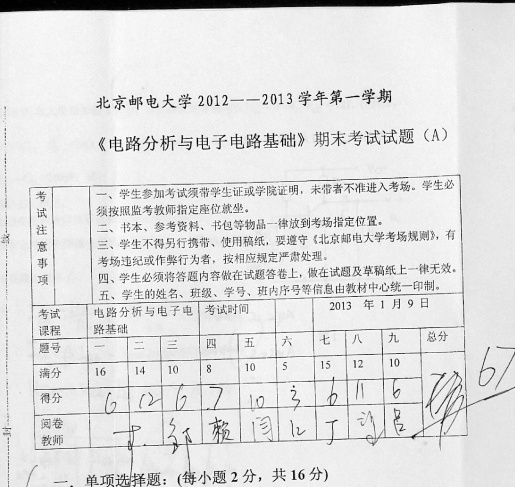 北京邮电大学 2012——2013 学年第一学期
《电路分析与电子电路基础》期末考试试题（A）
考试注意事项
一、学生参加考试须带学生证或学院证明，未带者不准进入考场。学生必
须按照监考教师指定座位就坐。
二、书本、参考资料、书包等物品一律放到考场指定位置。
三、学生不得另行携带、使用稿纸，要遵守《北京邮电大学考场规则》，有
考场违纪或作弊行为者，按相应规定严肃处理。
四、学生必须将答题内容做在试题答卷上，做在试题及草稿纸上一律无效。
五、学生的姓名、班级、学号、班内序号等信息由教材中心统一印制。
考试课程 电路分析与电子电路基础 考试时间 2013 年 1 月 9 日
题号 一 二 三 四 五 六 七 八 九 总分
满分 16 14 10 8 10 5 15 12 10
得分 6 12 6 7 10 3 6 11 6 67
阅卷教师 赖 闫 江 丁 吕
一、单项选择题：(每小题 2 分，共 16 分)